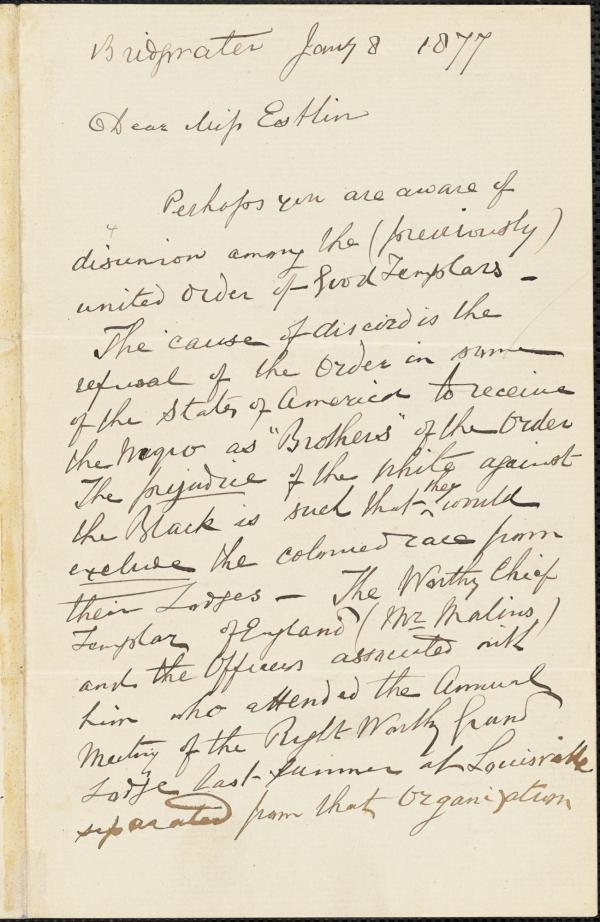 Bridgwater Jany 8 1877
Dear Miss Estlin
Perhaps you are aware of
disunion among the (previously)
united Order of Good Templars –
The cause of discord is the
refusal of the Order in some
of the States of America to receive
the Negro as "Brothers" of the Order
The prejudice of the white against
the Black is such that they would
exclude the coloured race from
their Lodges – The Worthy Chief
Templar of England (Mr Malins)
and the Officers associated with
him who attended the Annual
Meeting of the Right Worthy Grand
Lodge last summer at Louisville
separated from that Organization